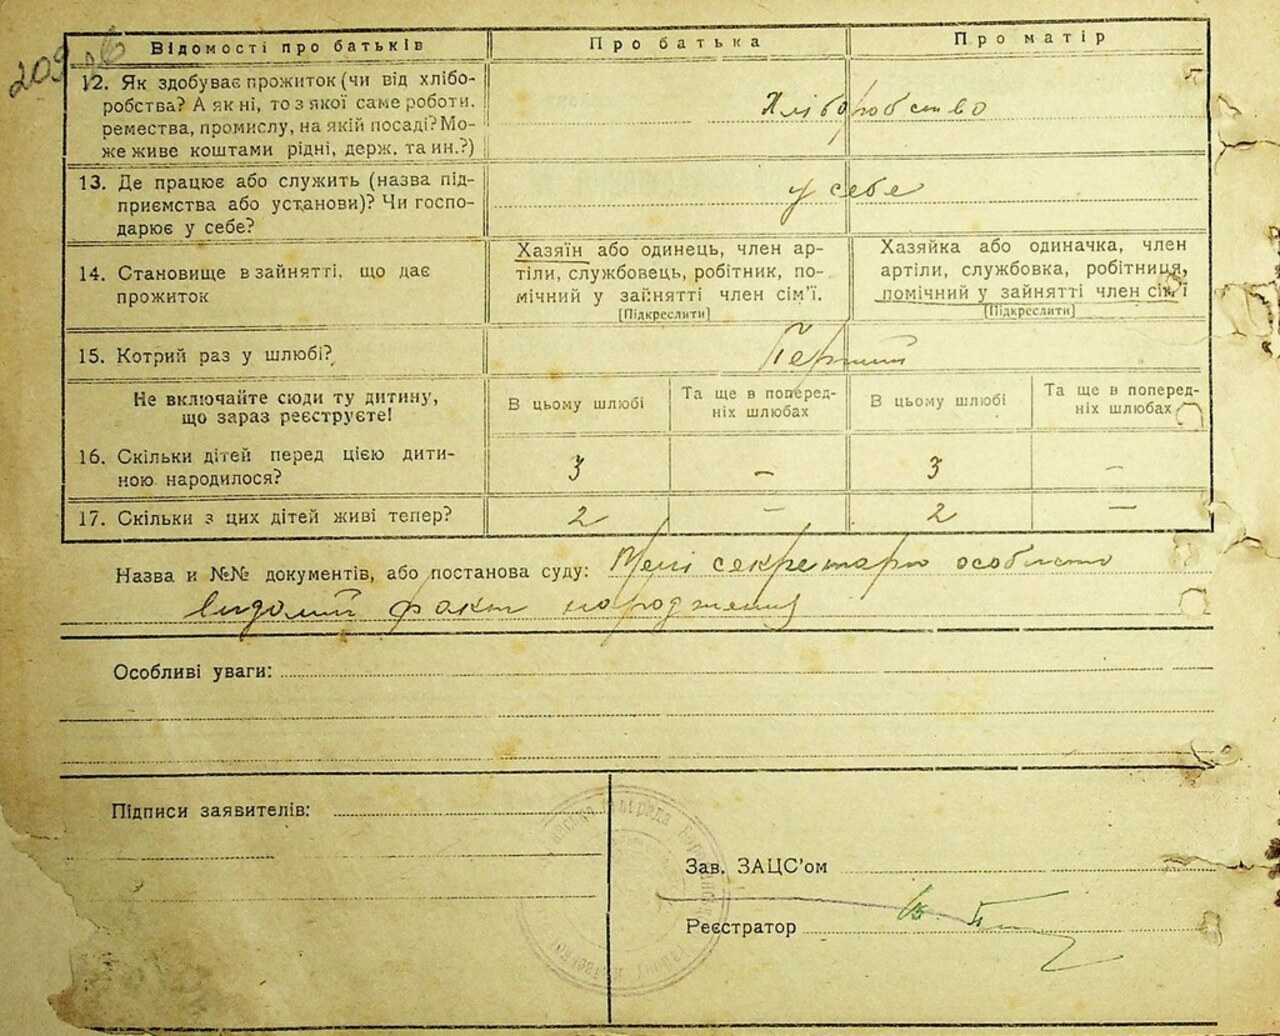 Відомості про батьків
Про батька
Про матір
12. Як здобуває прожиток (чи від хлібо-
робства? А як ні, то з якої саме роботи,
ремества, промислу, на якій посаді? Мо-
же живе коштами рідні, держ. та ин.?)
Хліборобство
13. Де працює або служить (назва під-
приємства або установи)? Чи госпо-
дарює у себе?
у себе
14. Становище в зайнятті, що дає
прожиток
Хазяїн або одинець, член ар-
тіли, службовець, робітник, по-
мічний у зайнятті член сім'ї.
[Підкреслити]
Хазяйка або одиначка, член
артіли, службовка, робітниця,
помічний у зайнятті член сім'ї
[Підкреслити]
15. Котрий раз у шлюбі?
Перший
Не включайте сюди ту дитину,
що зараз реєструєте!
В цьому шлюбі
Та ще в поперед-
ніх шлюбах
В цьому шлюбі
Та ще в поперед-
ніх шлюбах
16. Скільки дітей перед цією дити-
ною народилося?
3 – 3 –
17. Скільки з цих дітей живі тепер?
2 – 2 –
Назва и №№ документів, або постанова суду: Мені секретарю особисто
видомий факт народження
Особливі уваги:
Підписи заявителів:
Зав. ЗАЦС'ом
Реєстратор